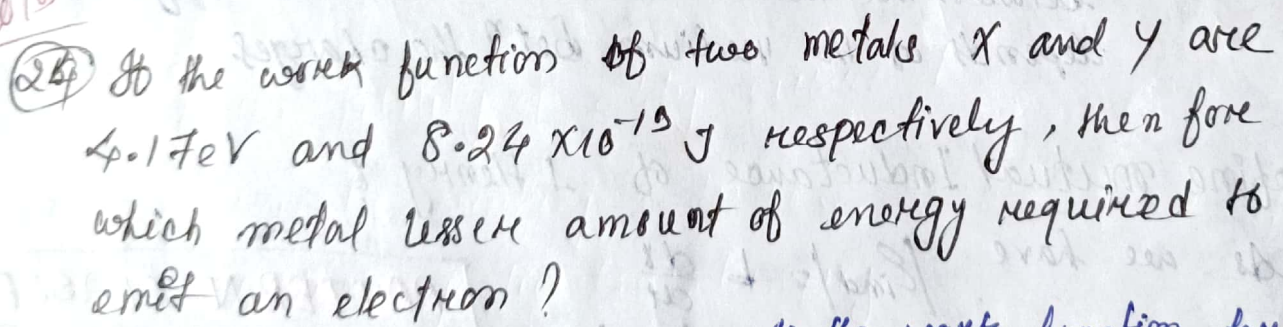 24 If the work function of two metals X and Y are
4.17eV and 8.24 X10⁻¹⁹ J respectively, then for
which metal lesser amount of energy required to
emit an electron ?